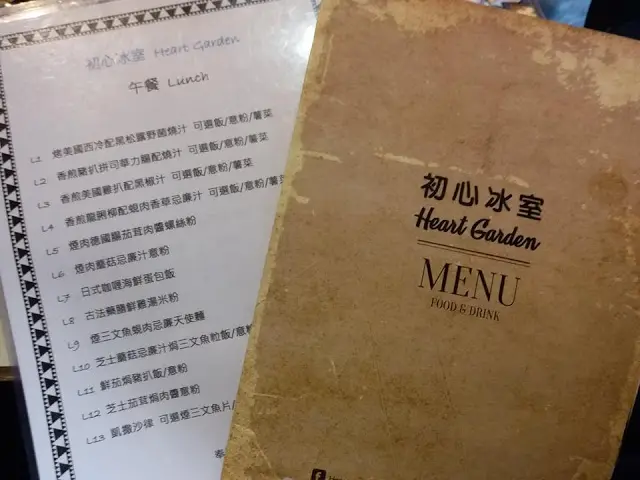 初心冰室 Heart Garden
午餐 Lunch
L1 烤美國西冷配黑松露野菌燒汁 可選飯/意粉/薯菜
L2 香煎豬扒拼司華力腸配燒汁 可選飯/意粉/薯菜
L3 香煎美國雞扒配黑椒汁 可選飯/意粉/薯菜
L4 香煎龍脷柳配蜆肉香草忌廉汁 可選飯/意粉/薯
L5 煙肉德國腸茄茸肉醬螺絲粉
L6 煙肉蘑菇忌廉汁意粉
L7 日式咖喱海鮮蛋包飯
L8 古法藥膳鮮雞湯米粉
L9 煙三文魚蜆肉忌廉天使麵
L10 芝士蘑菇忌廉汁焗三文魚粒飯/意粉
L11 鮮茄焗豬扒飯/意粉
L12 芝士茄茸焗肉醬意粉
L13 凱撒沙律 可選煙三文魚片/
初心冰室
Heart Garden
MENU
FOOD & DRINK